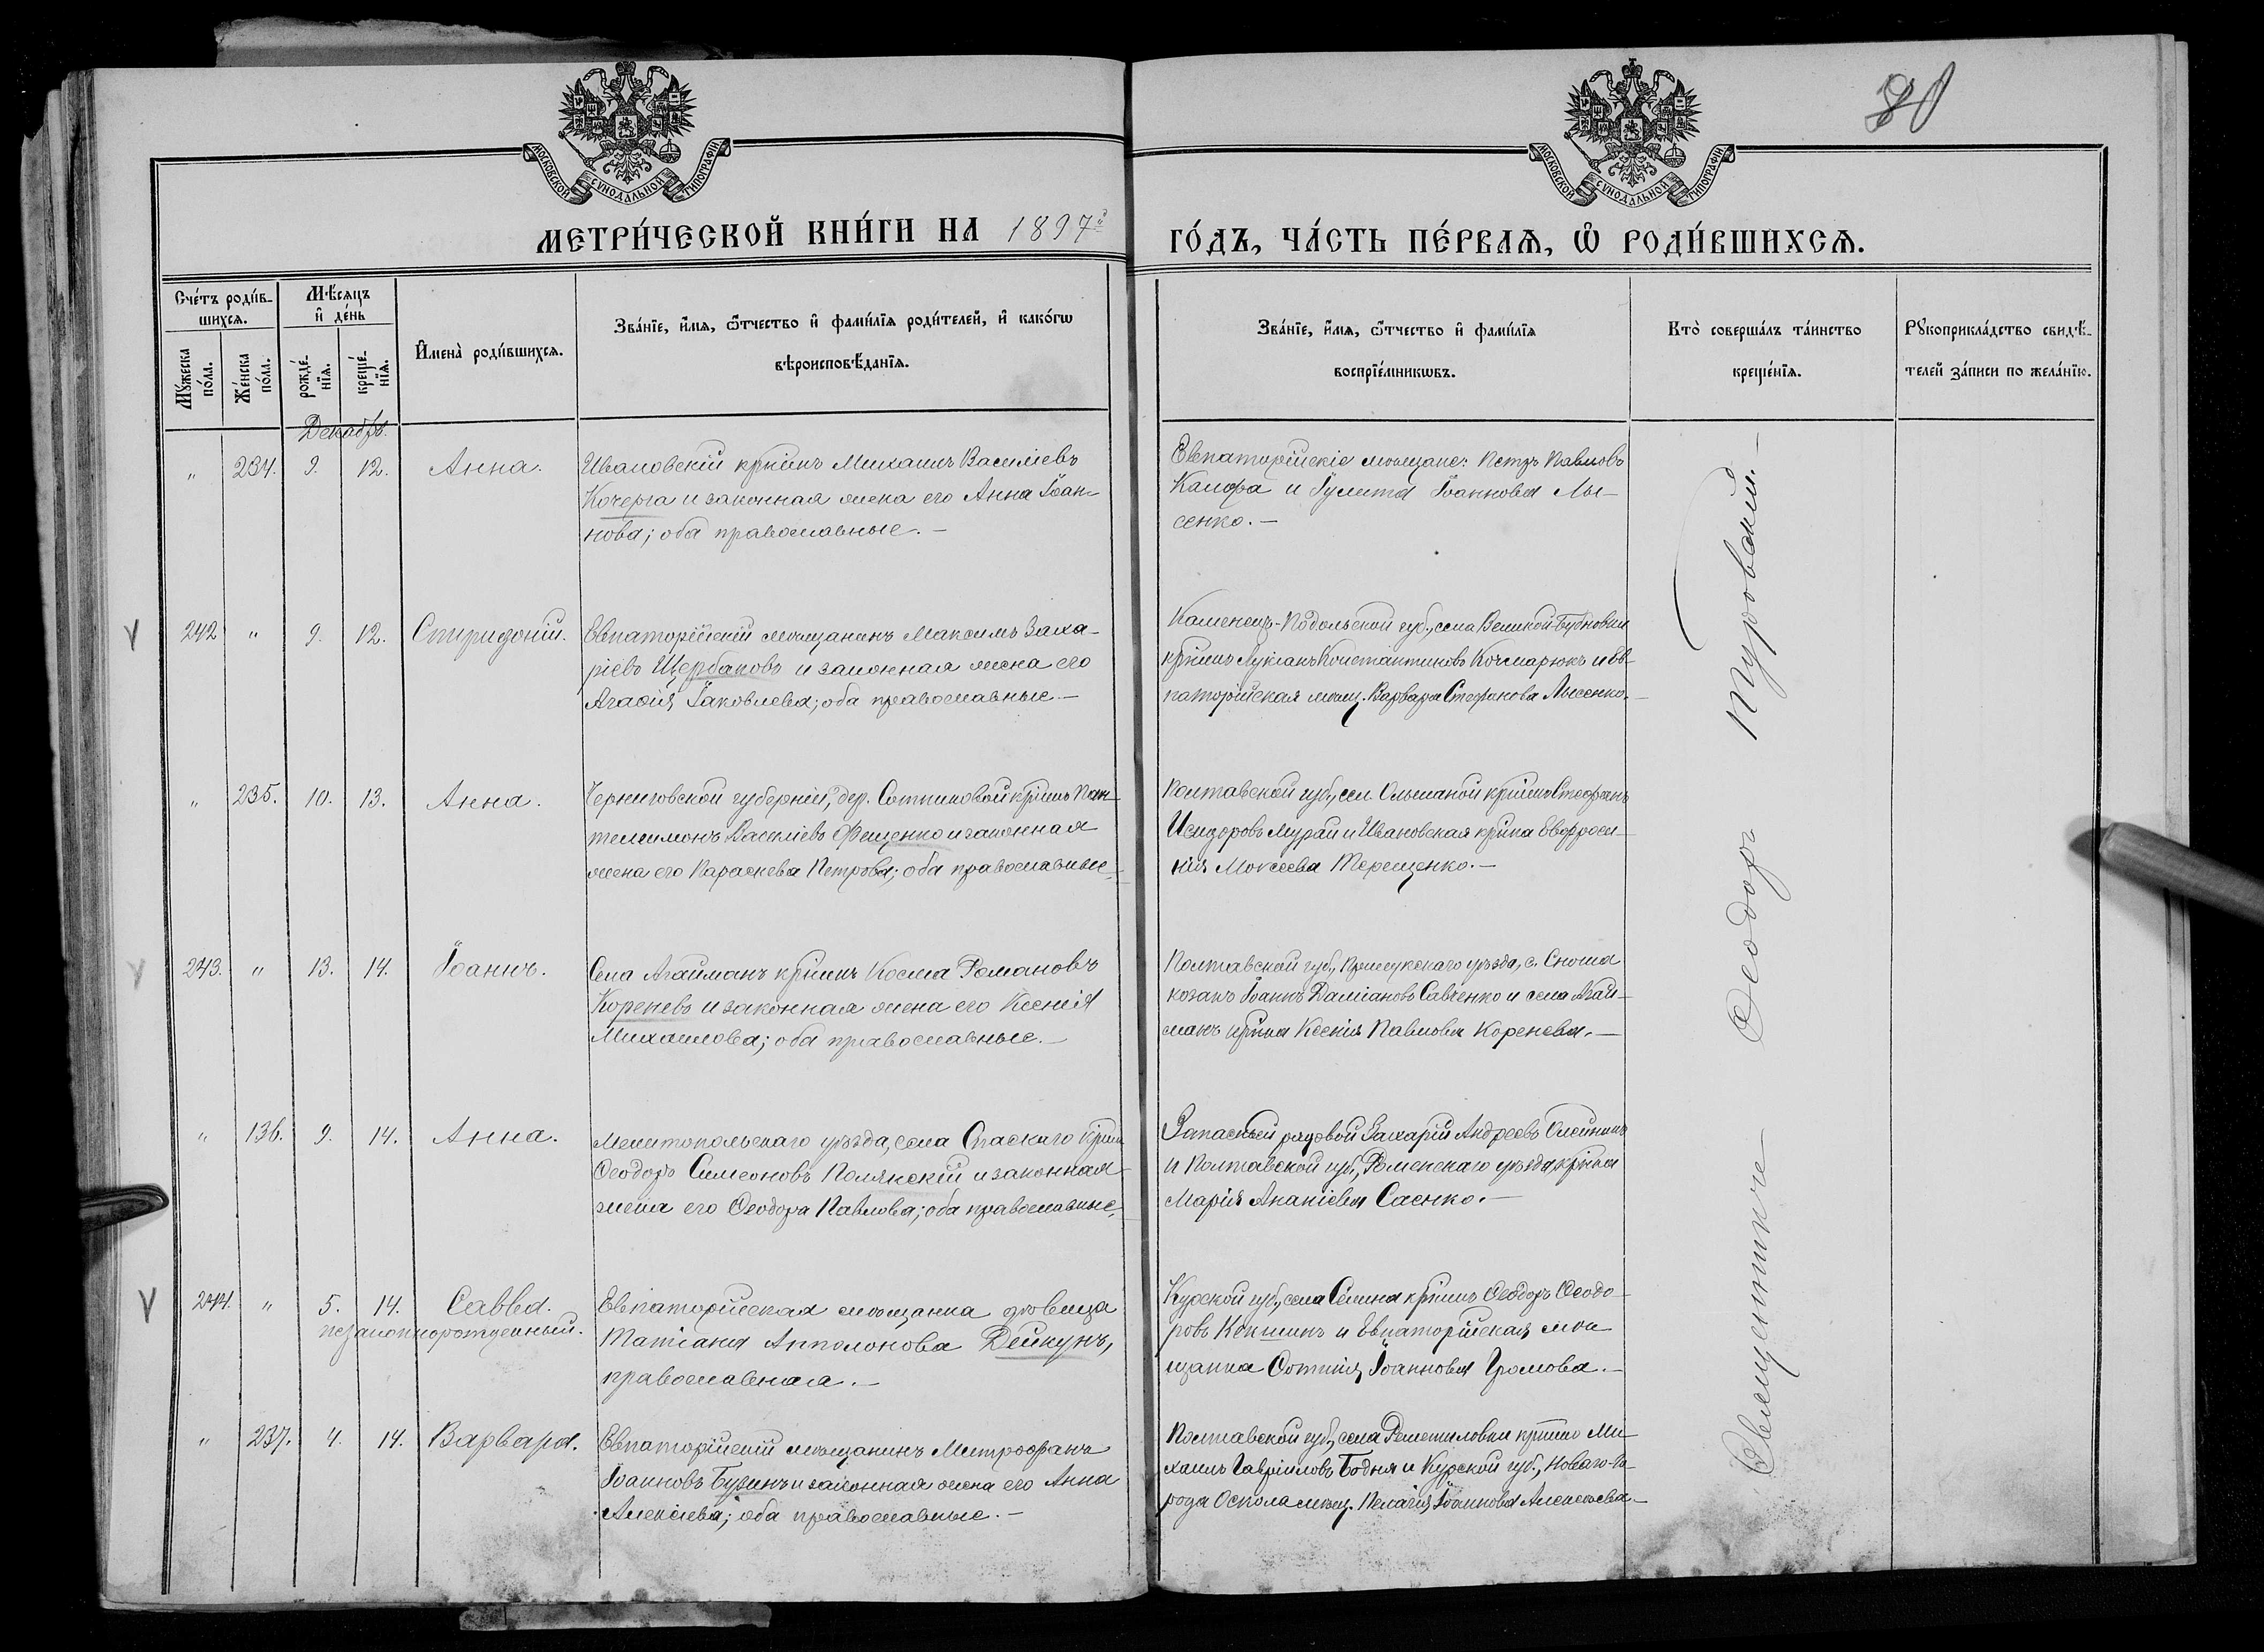 МОСКОВСКОЙ СѴНОДАЛЬНОЙ ТИПОГРАФІИ
МОСКОВСКОЙ СѴНОДАЛЬНОЙ ТИПОГРАФІИ
МЕТРИ́ЧЕСКОЙ КНИ́ГИ НА 1897й
ГО́ДЪ, ЧА́СТЬ ПЕ́РВАѦ, Ѽ РОДИ́ВШИХСѦ.
Сче́тъ роди́в-
шихсѧ.
Мꙋ́жеска
по́ла.
Же́нска
по́ла.
Мѣ́сѧцъ
и҆ де́нь
рожде́-
нїѧ.
креще́-
нїѧ.
И҆мена̀ роди́вшихсѧ.
Зва́нїе, и҆́мѧ, ѻ҆́тчество и҆ фами́лїѧ роди́телей, и҆ како́гѡ
вѣроисповѣ́данїѧ.
Зва́нїе, и҆́мѧ, ѻ҆́тчество и҆ фами́лїѧ
воспрїе́мникѡвъ.
Кто̀ соверша́лъ та́инство
креще́нїѧ.
Рꙋкоприкла́дство свидѣ́-
телей за́писи по жела́нїю.
Декабрь.
" 234. 9. 12. Анна.
Ивановскій кр҃нинъ Михаилъ Василіевъ
Кочерга и законная жена его Анна Іоан-
нова; оба православные.-
Евпаторійскіе мѣщане: Петръ Павловъ
и Іулита Іоаннова Лы-
сенко.-
242 " 9. 12. Спиридонъ.
Евпаторійскій мѣщанинъ Максимъ Заха-
ріевъ Щербаковъ и законная жена его
Агаѳія Іаковлева; оба православные-
Каменецъ-Подольской губ., села Великой-Бубновки
кр҃нинъ Лукіанъ Константиновъ Кочмарюкъ и Ев-
паторійская мѣщ. Варвара Стефанова Лысенко.-
" 235. 10. 13. Анна.
Черниговской губерніи, дер. Сотниковой кр҃нинъ Пан-
телеимонъ Василіевъ Фещенко и законная
жена его Параскева Петрова; оба православные.-
Полтавской губ., сел. Ольшаной кр҃нинъ Стефанъ
Исидоровъ Мурай и Ивановская кр҃нка Евфроси-
нія Моѵсеева Терещенко.-
243. " 13. 14. Іоаннъ.
Села Агайманъ кр҃нинъ Косма Романовъ
Кореневъ и законная жена его Ксенія
Михаилова; оба православные.-
Полтавской губ., Прилукскаго уѣзда, с. Сноша
козакъ Іоаннъ Даміановъ Савченко и села Агай-
манъ кр҃нка Ксенія Павлова Коренева.-
" 136. 9. 14. Анна.
Мелитопольскаго уѣзда, села Спаскаго кр҃нинъ
Ѳеодоръ Симеоновъ Полянскій и законная
жена его Ѳеодора Павлова; оба православные.-
Запасный рядовой Захарій Андреевъ Олейникъ
и Полтавской губ., Роменскаго уѣзда, кр҃нка
Марія Ананіева Саенко.-
244. " 5. 14. Савва.
незаконнорожденный.
Евпаторійская мѣщанка дѣвица
Татіана Апполонова Дейкунъ,
православная.-
Курской губ., села Селина кр҃нинъ Ѳеодоръ Ѳеодо-
ровъ Кекшинъ и Евпаторійская мѣ-
щанка Фотинія Іоаннова Громова.-
" 237. 4. 14. Варвара.
Евпаторійскій мѣщанинъ Митрофанъ
Іоанновъ Бугинъ и законная жена его Анна
Алексіева; оба православные.-
Полтавской губ., села Решетиловки кр҃нинъ Ми-
хаилъ Гавріиловъ Бодня и Курской губ., Новаго-Го-
рода Оскола мѣщ. Пелагія Іоаннова Алексѣева.-
Священникъ Ѳеодоръ Туровскій.-